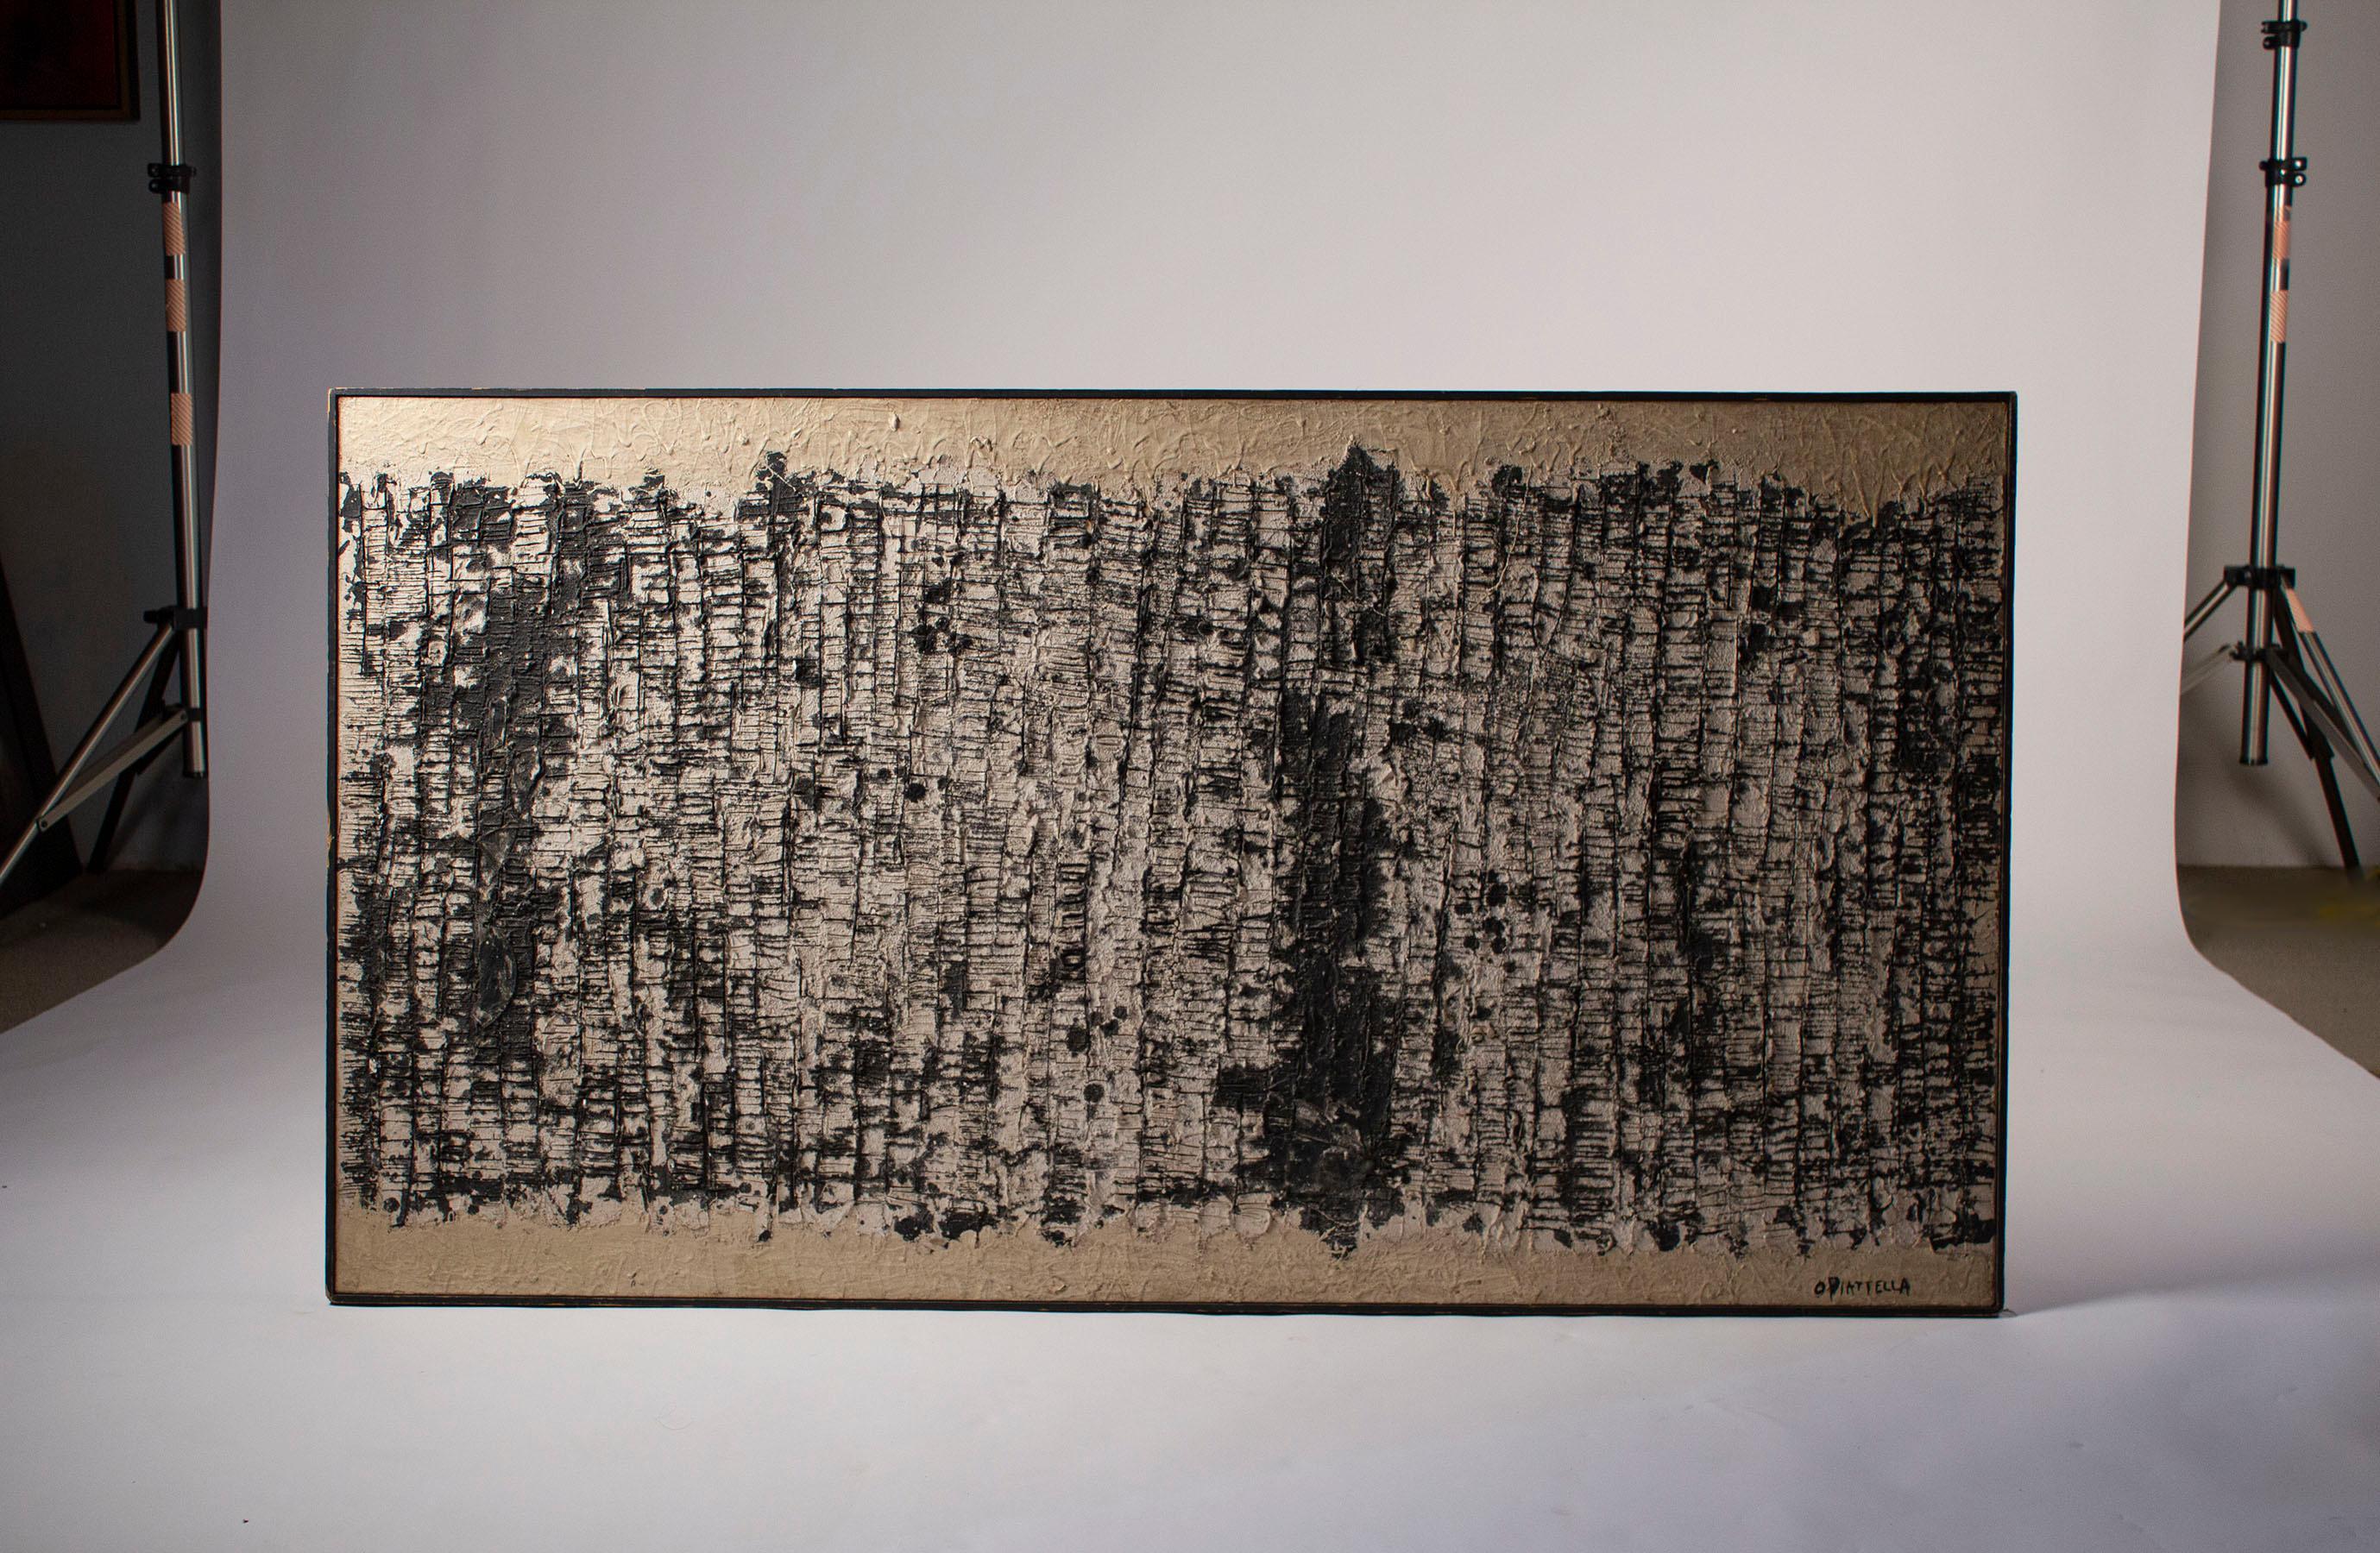 O PIATTELLA